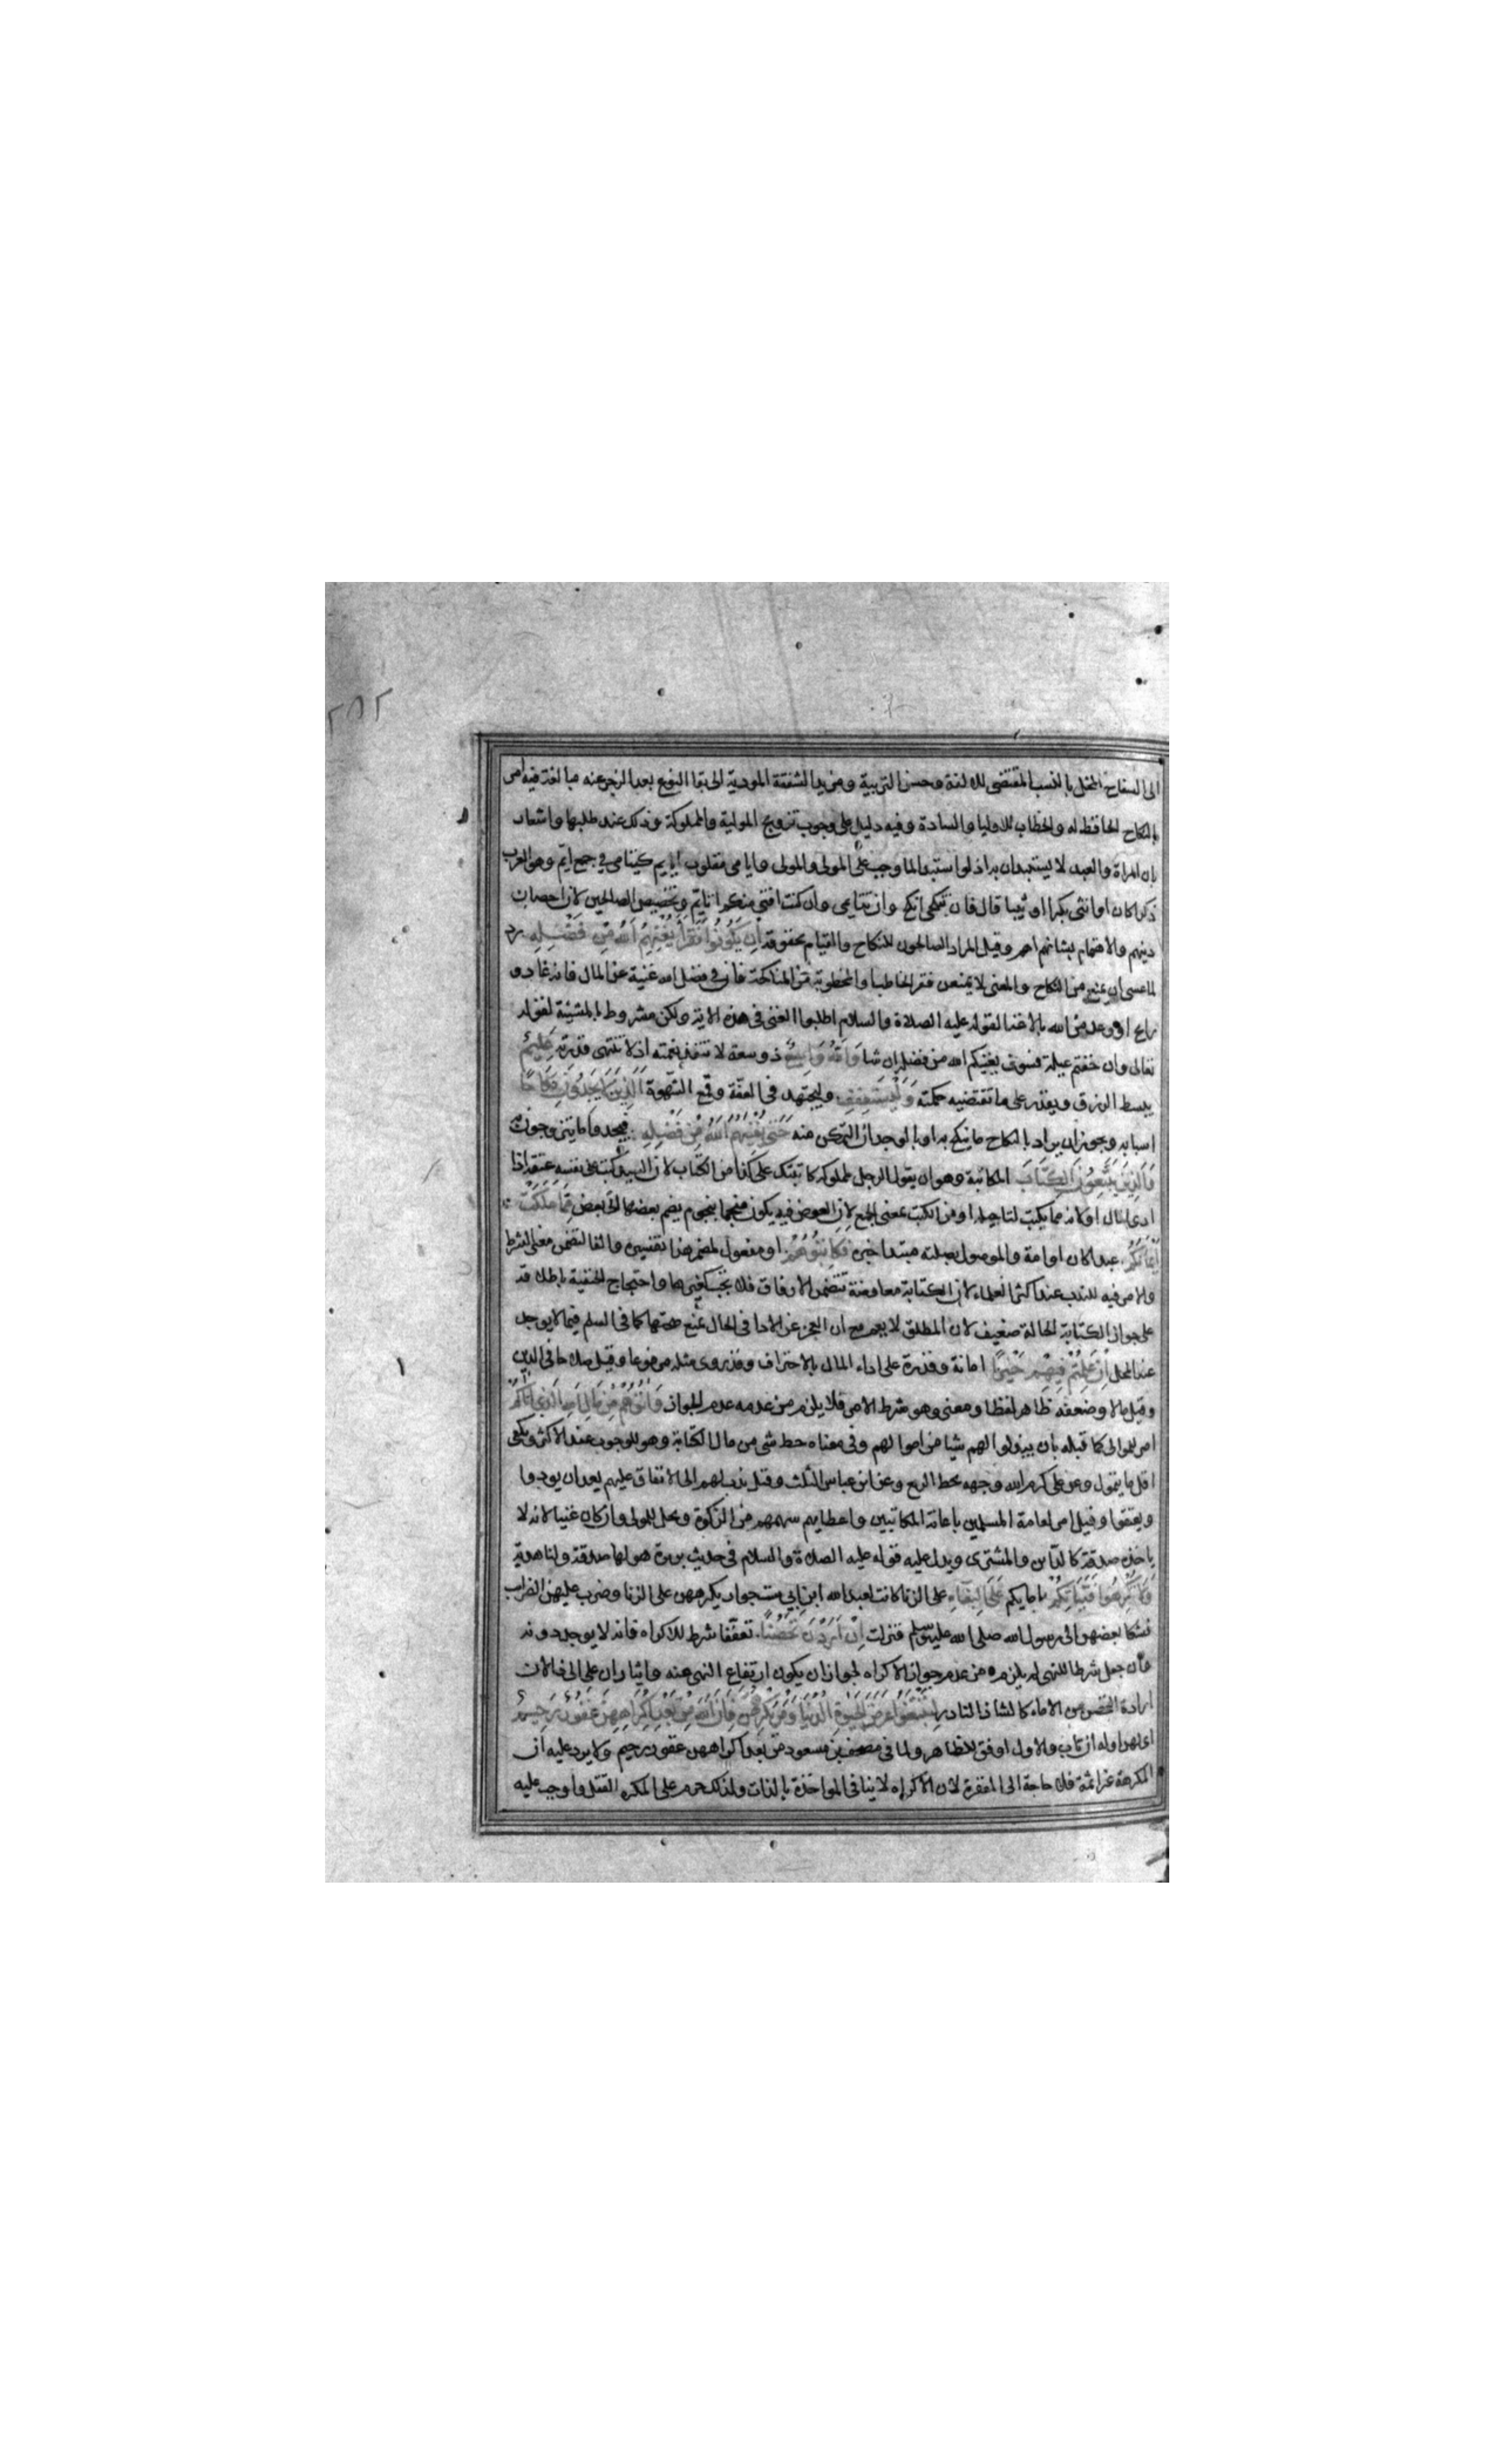 ٢٥٢
الى السفاح المخل بالنسب المقتضى للالفة وحسن التربية ومزيد الشفقة المودية الى بقا النوع بعد الزجر عنه مبالغة فيه امر
بالنكاح الحافظ له والخطاب للاوليا والسادة وفيه دليل على وجوب تزويج المولية والمملوكة وذلك عند طلبها واشعار
بان المراة والعبد لا يستبدان به اذ لو استبدا لما وجب على المولى والمولى وايامى مقلوب ايايم كيتامى في جمع ايم وهو العزب
ذكرا كان او انثى بكرا او ثيبا قال فان تنكحى انكح وان تتايمى وان كنت افتى منكم اتايم وتخصيص الصالحين لان احصان
دينهم والاهتمام بشانهم اهم وقيل المراد الصالحون للنكاح والقيام بحقوقه اِنْ يَكُونُوا فُقَرَاءَ يُغْنِهِمُ اللهُ مِنْ فَضْلِهِ رد
لما عسى ان يمنع من النكاح والمعنى لا يمنعن فقر الخاطب او المخطوبة من المناكحة فان في فضل الله غنية عن المال فانه غاد و
رايح او وعد من الله بالاغنا لقوله عليه الصلاة والسلام اطلبوا الغنى فى هذه الاية ولكن مشروط بالمشيئة لقوله
تعالى وان خفتم عيلة فسوف يغنيكم الله من فضله ان شا وَاللهُ وَاسِعٌ ذو سعة لا تنفد نعمته اذ لا تنتهى قدرته عَلِيمٌ
يبسط الرزق ويقدر على ما تقتضيه حكمته وَلْيَسْتَعْفِفِ وليجتهد فى العفة وقمع الشهوة الَّذِينَ لَا يَجِدُونَ نِكَاحًا
اسبابه ويجوز ان يراد بالنكاح ما ينكح به او بالوجدان التمكن منه حَتَّى يُغْنِيَهُمُ اللهُ مِنْ فَضْلِهِ فيجدوا ما يتزوجون به
وَالَّذِينَ يَبْتَغُونَ الْكِتَابَ المكاتبة وهو ان يقول الرجل لمملوكه كاتبتك على كذا من الكتاب لان السيد كتب على نفسه عتقه اذا
ادى المال او لانه مما يكتب لتاجيله او من الكتب بمعنى الجمع لان العوض فيه يكون منجما بنجوم يضم بعضها الى بعض مِمَّا مَلَكَتْ
اَيْمَانُكُمْ عبدا كان او امة والموصول بصلته مبتدا خبره فَكَاتِبُوهُمْ او مفعول لمضمر هذا تفسيره والفا لتضمن معنى الشرط
والامر فيه للندب عند اكثر العلماء لان الكتابة معاوضة تتضمن الارفاق فلا تجب كغيرها واحتجاج الحنفية باطلاقه
على جواز الكتابة الحالة ضعيف لان المطلق لا يعم مع ان العجز عن الادا فى الحال يمنع صحتها كما فى السلم فيما لا يوجد
عند المحل اِنْ عَلِمْتُمْ فِيهِمْ خَيْرًا امانة وقدرة على اداء المال بالاحتراف وقد روى مثله مرفوعا وقيل صلاحا فى الدين
وقيل مالا وضعفه ظاهر لفظا ومعنى وهو شرط الامر فلا يلزم من عدمه عدم الجواز وَاٰتُوهُمْ مِنْ مَالِ اللهِ الَّذِى اٰتَاكُمْ
امر للموالى كما قبله بان يبذلوا لهم شيا من اموالهم وفى معناه حط شى من مال الكتابة وهو للوجوب عند الاكثر ويكفى
اقل ما يتمول وعن على كرم الله وجهه يحط الربع وعن ابن عباس الثلث وقيل ندب لهم الى الانفاق عليهم بعد ان يودوا
ويعتقوا وقيل امر لعامة المسلمين باعانة المكاتبين واعطايهم سهمهم من الزكوة ويحل للمولى وان كان غنيا لانه لا
ياخذه صدقة كالداين والمشترى ويدل عليه قوله عليه الصلاة والسلام فى حديث بريرة هو لها صدقة ولنا هدية
وَلَا تُكْرِهُوا فَتَيَاتِكُمْ امايكم عَلَى الْبِغَاءِ على الزنا كانت لعبد الله ابن ابي ست جوار يكرههن على الزنا وضرب عليهن الضرايب
فشكا بعضهن الى رسول الله صلى الله عليه وسلم فنزلت اِنْ اَرَدْنَ تَحَصُّنًا تعففا شرط للاكراه فانه لا يوجد دونه
وان جعل شرطا للنهى لم يلزم من عدمه جواز الاكراه لجواز ان يكون ارتفاع النهى عنه وايثار ان على اذا لان
ارادة التحصن من الاماء كالشاذ النادر لِتَبْتَغُوا عَرَضَ الْحَيٰوةِ الدُّنْيَا وَمَنْ يُكْرِهْهُنَّ فَاِنَّ اللهَ مِنْ بَعْدِ اِكْرَاهِهِنَّ غَفُورٌ رَحِيمٌ
اى لهن او له ان تاب والاول اوفق للظاهر ولما فى مصحف بن مسعود من بعد اكراههن غفور رحيم ولا يرد عليه ان
المكرهة غير اثمة فلا حاجة الى المغفرة لان الاكراه لا ينافى المواخذة بالذات ولذلك حرم على المكره القتل واوجب عليه